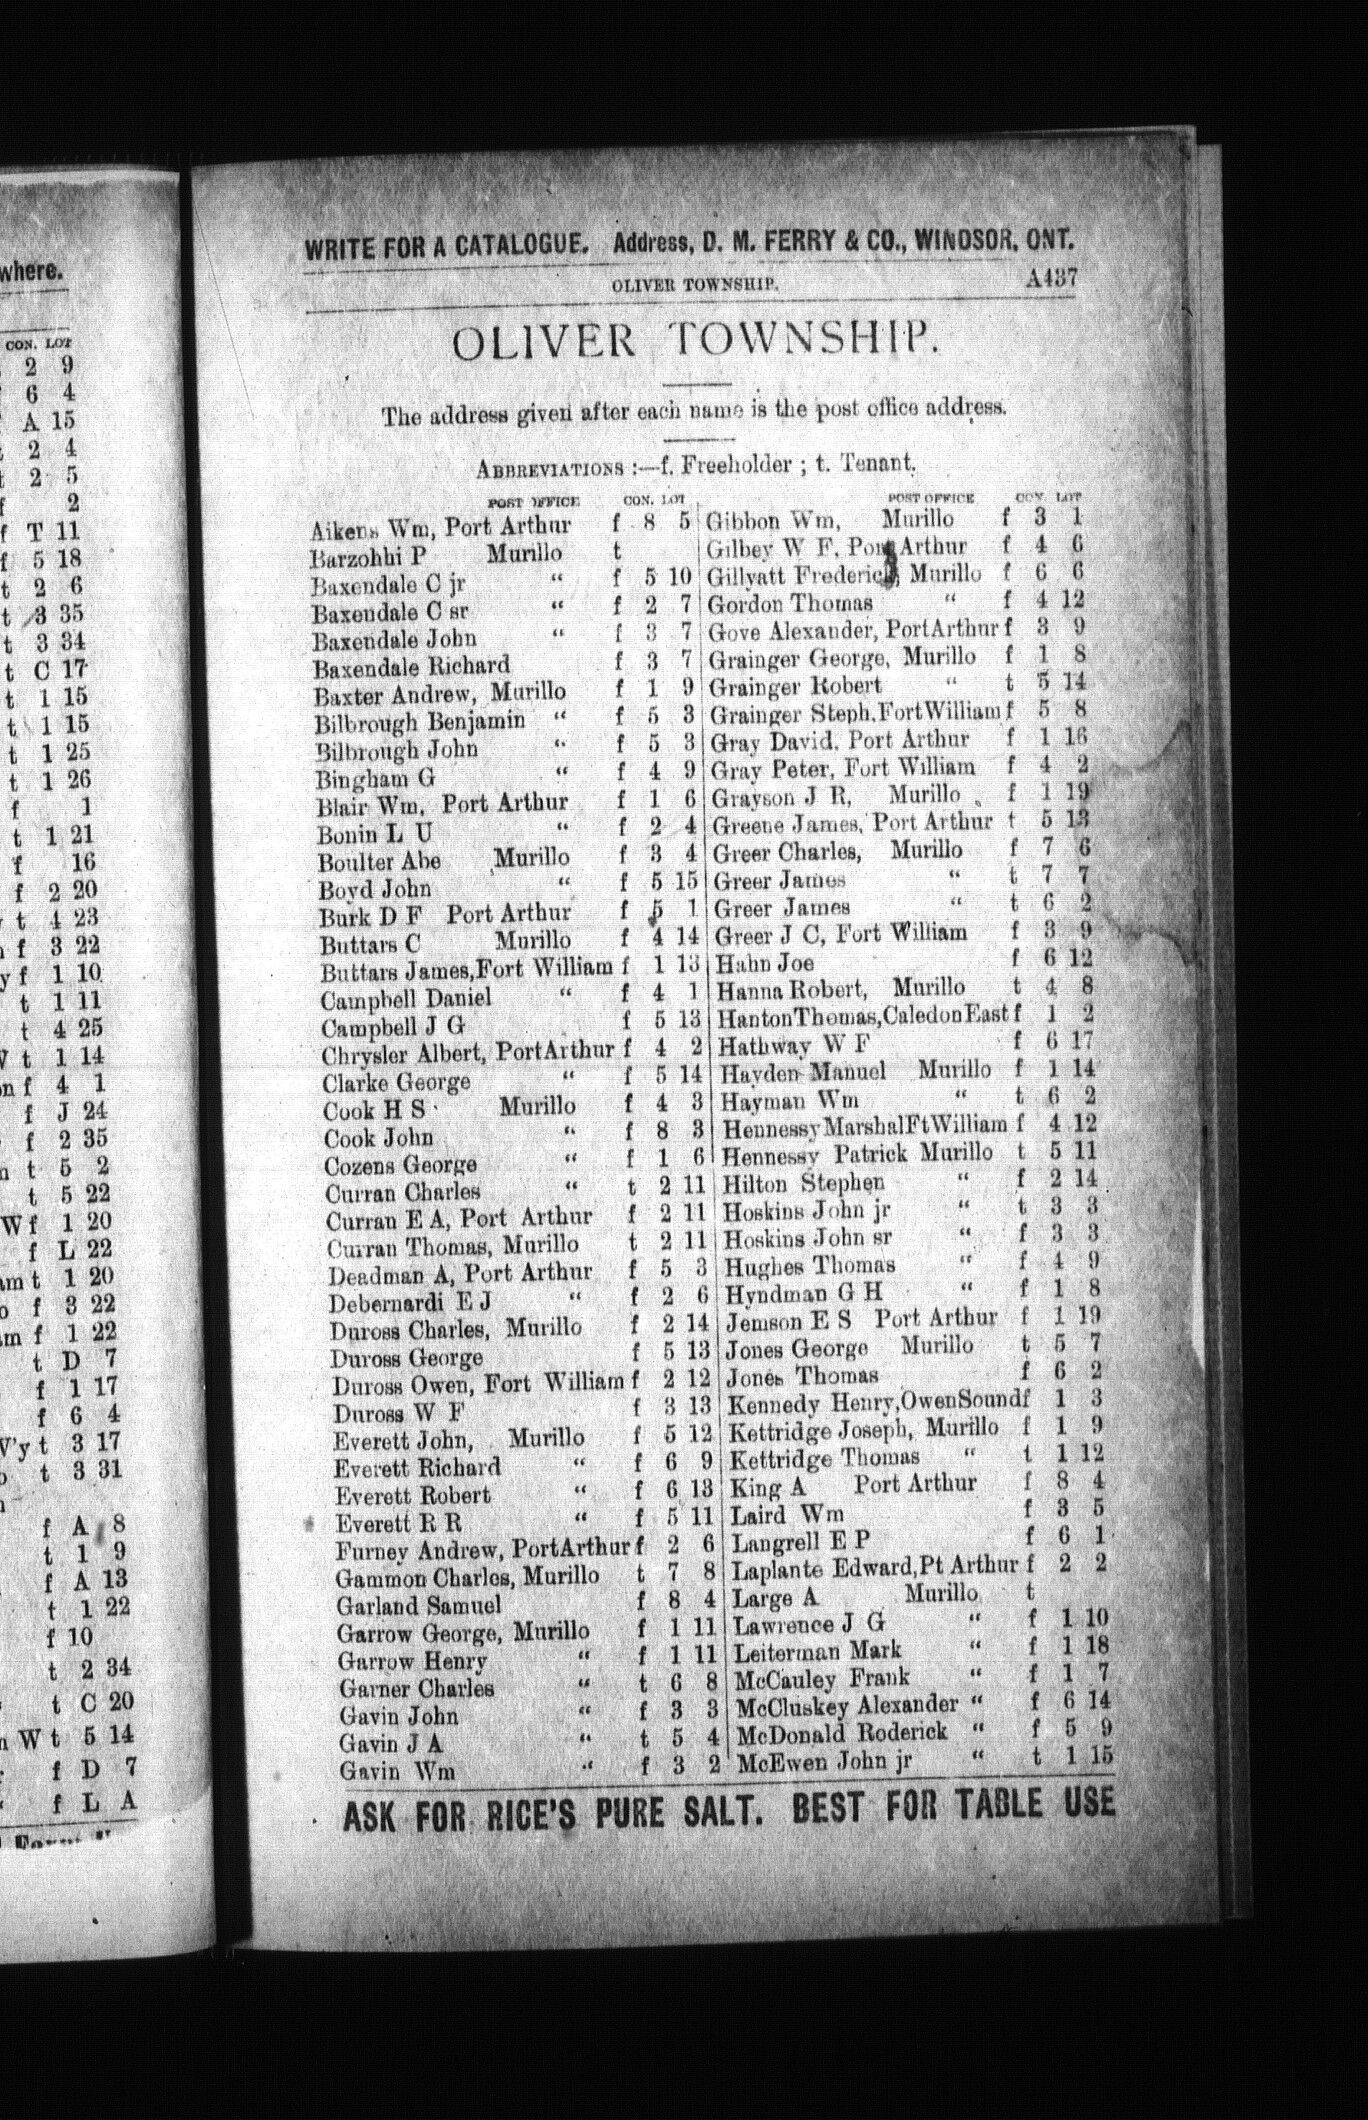 where.
CON. LOT
2 9
6 4
A 15
2 4
t 2 5
f 2
f T 11
f 5 18
t 2 6
t 3 35
t 3 34
t C 17
t 1 15
t 1 15
t 1 25
t 1 26
f 1
t 1 21
f 16
f 2 20
t 4 23
f 3 22
y f 1 10
t 1 11
t 4 25
t 1 14
on f 4 1
f J 24
f 2 35
t 5 2
t 5 22
W f 1 20
f L 22
am t 1 20
o f 3 22
am f 1 22
t D 7
f 1 17
f 6 4
V'y t 3 17
t 3 31
f A 8
t 1 9
f A 13
t 1 22
f 10
t 2 34
t C 20
n W t 5 14
f D 7
f L A
WRITE FOR A CATALOGUE. Address, D. M. FERRY & CO., WINDSOR, ONT.
OLIVER TOWNSHIP. A437
OLIVER TOWNSHIP.
The address given after each name is the post office address.
ABBREVIATIONS :—f. Freeholder ; t. Tenant.
POST OFFICE CON. LOT
Aikens Wm, Port Arthur f 8 5
Barzohhi P Murillo t
Baxendale C jr “ f 5 10
Baxendale C sr “ f 2 7
Baxendale John “ f 3 7
Baxendale Richard f 3 7
Baxter Andrew, Murillo f 1 9
Bilbrough Benjamin “ f 5 3
Bilbrough John “ f 5 3
Bingham G “ f 4 9
Blair Wm, Port Arthur f 1 6
Bonin L U “ f 2 4
Boulter Abe Murillo f 3 4
Boyd John “ f 5 15
Burk D F Port Arthur f 5 1
Buttars C Murillo f 4 14
Buttars James, Fort William f 1 13
Campbell Daniel “ f 4 1
Campbell J G f 5 13
Chrysler Albert, Port Arthur f 4 2
Clarke George “ f 5 14
Cook H S Murillo f 4 3
Cook John “ f 8 3
Cozens George “ f 1 6
Curran Charles “ t 2 11
Curran E A, Port Arthur f 2 11
Curran Thomas, Murillo t 2 11
Deadman A, Port Arthur f 5 3
Debernardi E J “ f 2 6
Duross Charles, Murillo f 2 14
Duross George f 5 13
Duross Owen, Fort William f 2 12
Duross W F f 3 13
Everett John, Murillo f 5 12
Everett Richard “ f 6 9
Everett Robert “ f 6 13
Everett R R “ f 5 11
Furney Andrew, Port Arthur f 2 6
Gammon Charles, Murillo t 7 8
Garland Samuel f 8 4
Garrow George, Murillo f 1 11
Garrow Henry “ f 1 11
Garner Charles “ t 6 8
Gavin John “ f 3 3
Gavin J A “ t 5 4
Gavin Wm “ f 3 2
POST OFFICE CON. LOT
Gibbon Wm, Murillo f 3 1
Gilbey W F, Port Arthur f 4 6
Gillyatt Frederick, Murillo f 6 6
Gordon Thomas “ f 4 12
Gove Alexander, Port Arthur f 3 9
Grainger George, Murillo f 1 8
Grainger Robert “ t 5 14
Grainger Steph. Fort William f 5 8
Gray David, Port Arthur f 1 16
Gray Peter, Fort William f 4 2
Grayson J R, Murillo f 1 19
Greene James, Port Arthur t 5 13
Greer Charles, Murillo f 7 6
Greer James “ t 7 7
Greer James “ t 6 2
Greer J C, Fort William f 3 9
Hahn Joe f 6 12
Hanna Robert, Murillo t 4 8
Hanton Thomas, Caledon East f 1 2
Hathway W F f 6 17
Hayden Manuel Murillo f 1 14
Hayman Wm “ t 6 2
Hennessy Marshal Ft William f 4 12
Hennessy Patrick Murillo t 5 11
Hilton Stephen “ f 2 14
Hoskins John jr “ t 3 3
Hoskins John sr “ f 3 3
Hughes Thomas “ f 4 9
Hyndman G H “ f 1 8
Jemson E S Port Arthur f 1 19
Jones George Murillo t 5 7
Jones Thomas f 6 2
Kennedy Henry, Owen Sound f 1 3
Kettridge Joseph, Murillo f 1 9
Kettridge Thomas “ t 1 12
King A Port Arthur f 8 4
Laird Wm f 3 5
Langrell E P f 6 1
Laplante Edward, Pt Arthur f 2 2
Large A Murillo t
Lawrence J G “ f 1 10
Leiterman Mark “ f 1 18
McCauley Frank “ f 1 7
McCluskey Alexander “ f 6 14
McDonald Roderick “ f 5 9
McEwen John jr “ t 1 15
ASK FOR RICE'S PURE SALT. BEST FOR TABLE USE